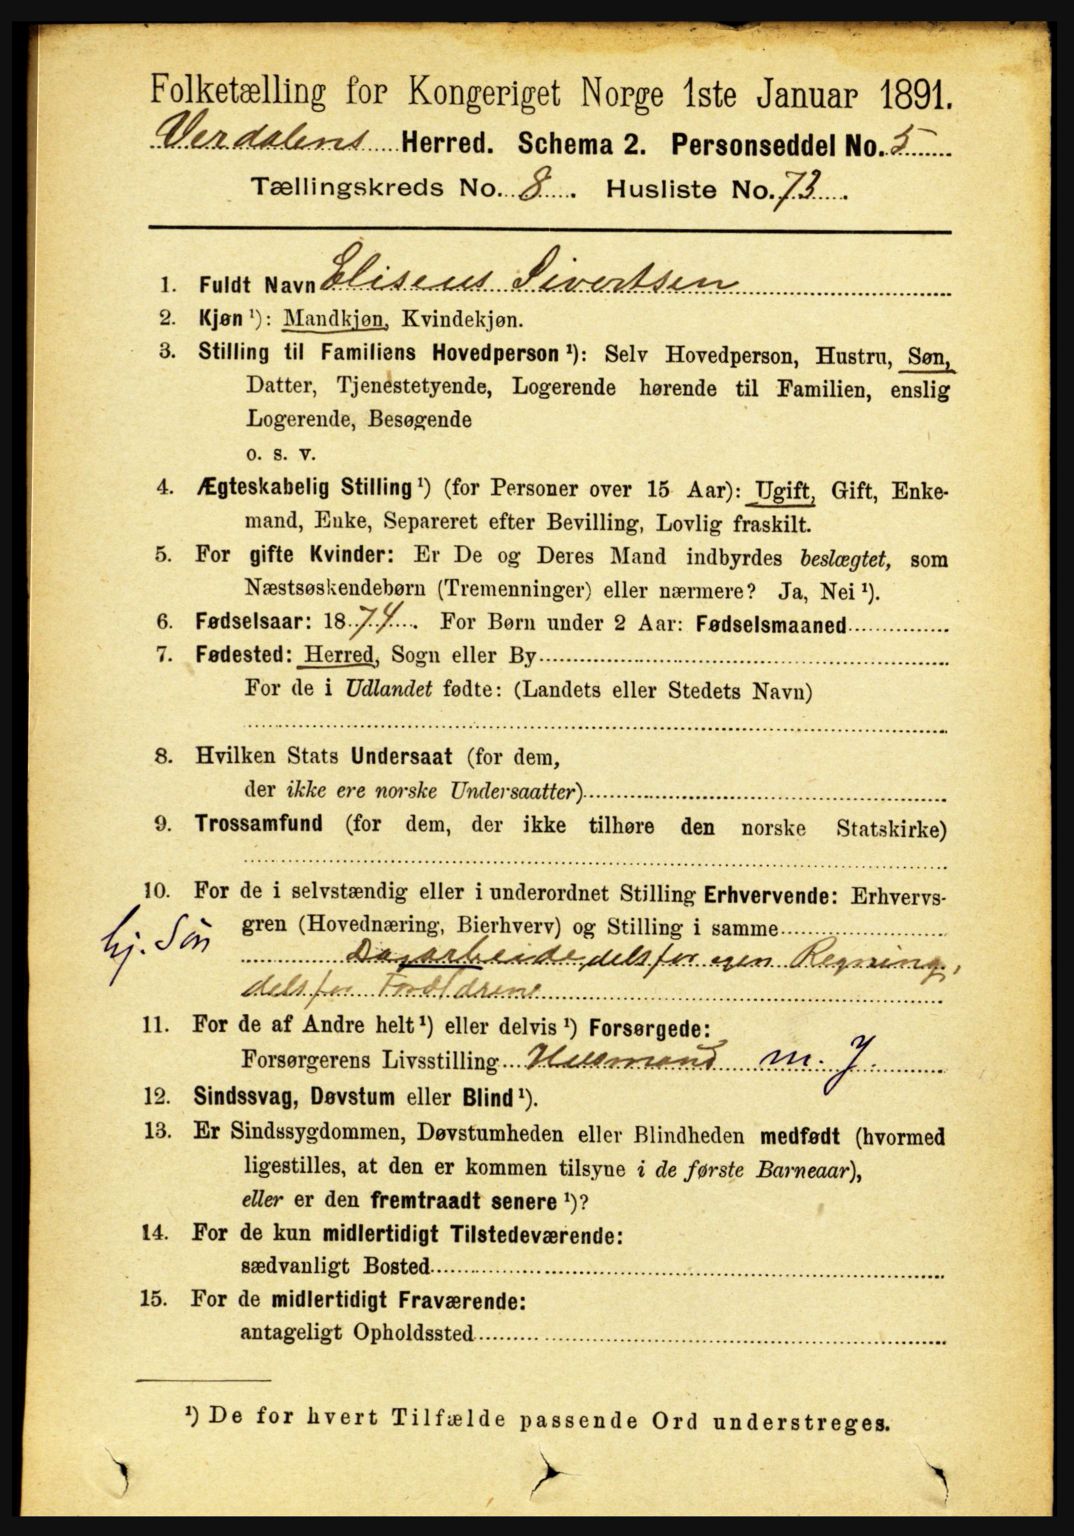 Folketælling for Kongeriget Norge 1ste Januar 1891.
Verdalens Herred. Schema 2. Personseddel No. 5
Tællingskreds No. 8. Husliste No. 73.
1. Fuldt Navn Eliseus Sivertsen
2. Kjøn ¹): Mandkjøn, Kvindekjøn.
3. Stilling til Familiens Hovedperson ¹): Selv Hovedperson, Hustru, Søn,
Datter, Tjenestetyende, Logerende hørende til Familien, enslig
Logerende, Besøgende
o. s. v.
4. Ægteskabelig Stilling ¹) (for Personer over 15 Aar): Ugift, Gift, Enke-
mand, Enke, Separeret efter Bevilling, Lovlig fraskilt.
5. For gifte Kvinder: Er De og Deres Mand indbyrdes beslægtet, som
Næstsøskendebørn (Tremenninger) eller nærmere? Ja, Nei ¹).
6. Fødselsaar: 1874. For Børn under 2 Aar: Fødselsmaaned
7. Fødested: Herred, Sogn eller By
For de i Udlandet fødte: (Landets eller Stedets Navn)
8. Hvilken Stats Undersaat (for dem,
der ikke ere norske Undersaatter)
9. Trossamfund (for dem, der ikke tilhøre den norske Statskirke)
10. For de i selvstændig eller i underordnet Stilling Erhvervende: Erhvervs-
hj. Søn gren (Hovednæring, Bierhverv) og Stilling i samme
Dagarbeide, dels for egen Regning,
dels for Forældrene
11. For de af Andre helt ¹) eller delvis ¹) Forsørgede:
Forsørgerens Livsstilling Husmand m. J.
12. Sindssvag, Døvstum eller Blind ¹).
13. Er Sindssygdommen, Døvstumheden eller Blindheden medfødt (hvormed
ligestilles, at den er kommen tilsyne i de første Barneaar),
eller er den fremtraadt senere ¹)?
14. For de kun midlertidigt Tilstedeværende:
sædvanligt Bosted
15. For de midlertidigt Fraværende:
antageligt Opholdssted
¹) De for hvert Tilfælde passende Ord understreges.